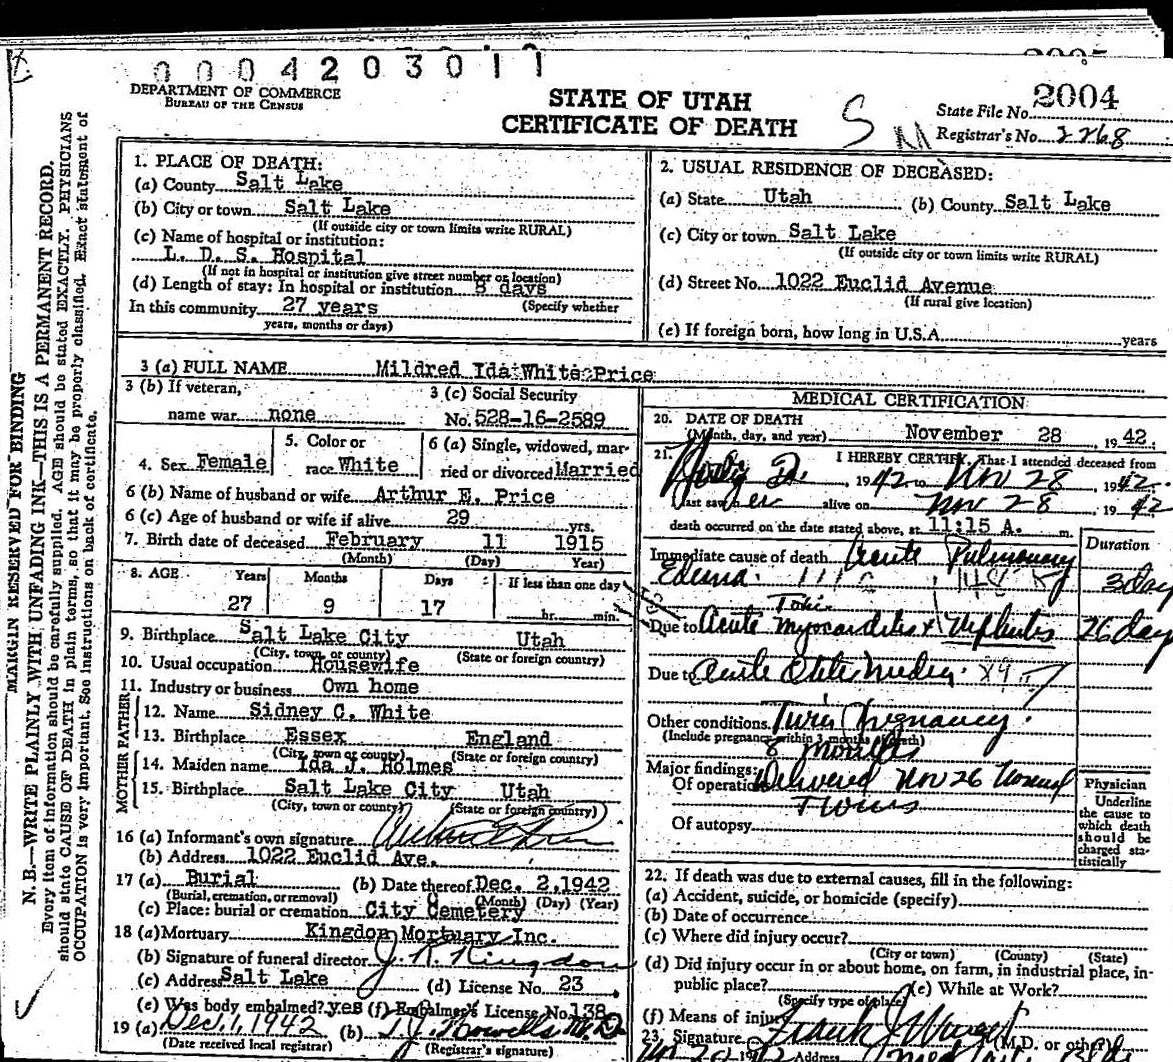 0004203011
DEPARTMENT OF COMMERCE
BUREAU OF THE CENSUS
STATE OF UTAH
CERTIFICATE OF DEATH
State File No. 2004
Registrar's No. 2268
MARGIN RESERVED FOR BINDING
N. B.—WRITE PLAINLY WITH UNFADING INK—THIS IS A PERMANENT RECORD.
Every item of information should be carefully supplied. AGE should be stated EXACTLY. PHYSICIANS
should state CAUSE OF DEATH in plain terms, so that it may be properly classified. Exact statement of
OCCUPATION is very important. See instructions on back of certificate.
1. PLACE OF DEATH:
(a) County Salt Lake
(b) City or town Salt Lake
(If outside city or town limits write RURAL)
(c) Name of hospital or institution:
L. D. S. Hospital
(If not in hospital or institution give street number or location)
(d) Length of stay: In hospital or institution 8 days
In this community 27 years (Specify whether
years, months or days)
2. USUAL RESIDENCE OF DECEASED:
(a) State Utah (b) County Salt Lake
(c) City or town Salt Lake
(If outside city or town limits write RURAL)
(d) Street No. 1022 Euclid Avenue
(If rural give location)
(e) If foreign born, how long in U.S.A. years
3 (a) FULL NAME Mildred Ida White Price
3 (b) If veteran,
name war none
3 (c) Social Security
No. 528-16-2589
4. Sex Female
5. Color or
race White
6 (a) Single, widowed, mar-
ried or divorced Married
6 (b) Name of husband or wife Arthur E. Price
6 (c) Age of husband or wife if alive 29 yrs.
7. Birth date of deceased February 11 1915
(Month) (Day) Year)
8. AGE Years Months Days If less than one day
27 9 17 hr. min.
9. Birthplace Salt Lake City Utah
(City, town, or county) (State or foreign country)
10. Usual occupation Housewife
11. Industry or business Own home
FATHER
12. Name Sidney C. White
13. Birthplace Essex England
(City, town or county) (State or foreign country)
MOTHER
14. Maiden name Ida J. Holmes
15. Birthplace Salt Lake City Utah
(City, town or county) (State or foreign country)
16 (a) Informant's own signature
(b) Address 1022 Euclid Ave.
17 (a) Burial (b) Date thereof Dec. 2, 1942
(Burial, cremation, or removal) (Month) (Day) (Year)
(c) Place: burial or cremation City Cemetery
18 (a) Mortuary Kingdon Mortuary Inc.
(b) Signature of funeral director J. R. Kingdon
(c) Address Salt Lake (d) License No. 23
(e) Was body embalmed? yes (f) Embalmer's License No. 138
19 (a) Dec. 1, 1942 (b)
(Date received local registrar) (Registrar's signature)
MEDICAL CERTIFICATION
20. DATE OF DEATH
(Month, day, and year) November 28 1942
21. I HEREBY CERTIFY, That I attended deceased from
1942 to Nov 28 1942
last saw her alive on Nov 28 1942
death occurred on the date stated above, at 11:15 A. m.
Duration
Immediate cause of death Acute Pulmonary
Edema. 3 day
Due to Acute Myocarditis & Nephritis 26 day
Due to Acute Otitis Media.
Other conditions Twin Pregnancy.
(Include pregnancy within 3 months of death)
8 months
Major findings:
Of operation Delivered Nov 26
Twins
Of autopsy
Physician
Underline
the cause to
which death
should be
charged sta-
tistically
22. If death was due to external causes, fill in the following:
(a) Accident, suicide, or homicide (specify)
(b) Date of occurrence
(c) Where did injury occur?
(City or town) (County) (State)
(d) Did injury occur in or about home, on farm, in industrial place, in-
public place? (e) While at Work?
(Specify type of place)
(f) Means of injury
23. Signature (M.D. or other)
Address